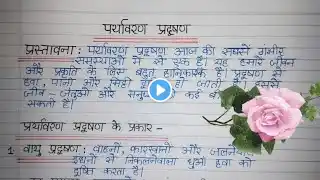 पर्यावरण प्रदूषण
प्रस्तावना : पर्यावरण प्रदूषण आज की सबसे गंभीर
समस्याओं में से एक है। यह हमारे जीवन
और प्रकृति के लिए बहुत हानिकारक है। प्रदूषण से
हवा, पानी और मिट्टी हो जाती
जीव - जंतुओं और कई
सकती हैं।
पर्यावरण प्रदूषण के प्रकार -
1. वायु प्रदूषण : वाहनों, कारखानों और
से निकलनेवाला धुआँ हवा को
दूषित करता है।